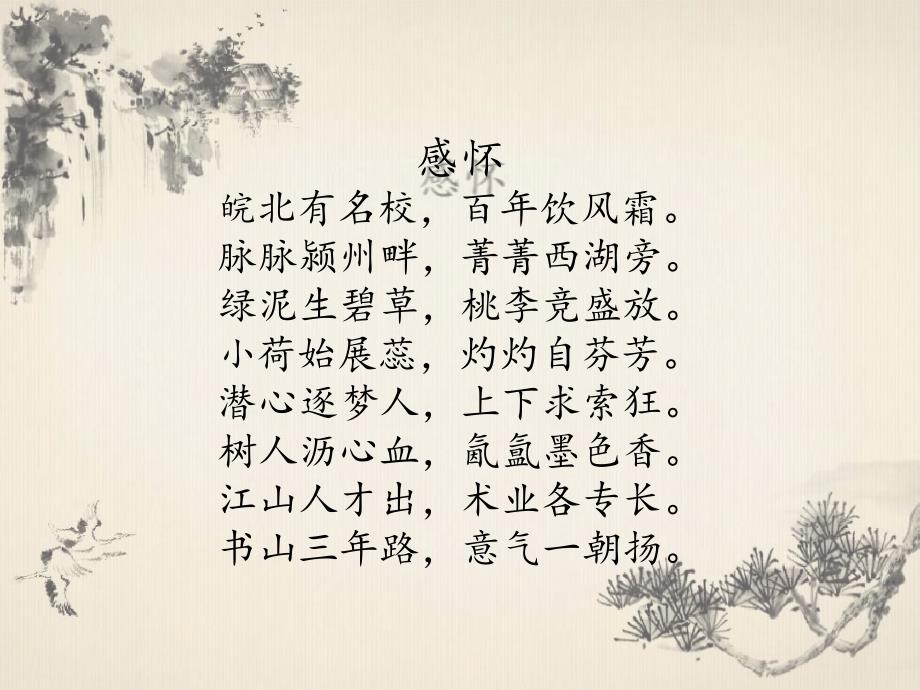 感怀
皖北有名校，百年饮风霜。
脉脉颍州畔，菁菁西湖旁。
绿泥生碧草，桃李竞盛放。
小荷始展蕊，灼灼自芬芳。
潜心逐梦人，上下求索狂。
树人沥心血，氤氲墨色香。
江山人才出，术业各专长。
书山三年路，意气一朝扬。